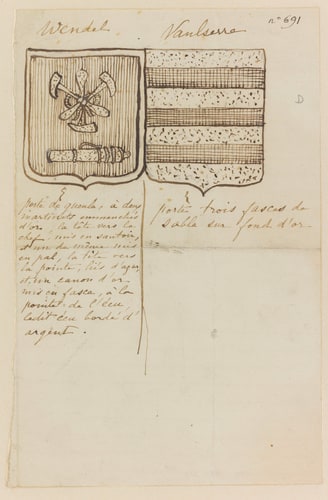 Wendel
Vaulserre
n° 691
D
porte de gueule, à deux
martinets emmanchés
d'or, la tête vers le
chef, mis en sautoir,
et un de même mis
en pal, la tête vers
la pointe, liés d'azur
et, un canon d'or
mis en fasce, à la
pointe de l'écu
ledit écu bordé d'
argent.
porte trois fasces de
sable sur fond d'or.